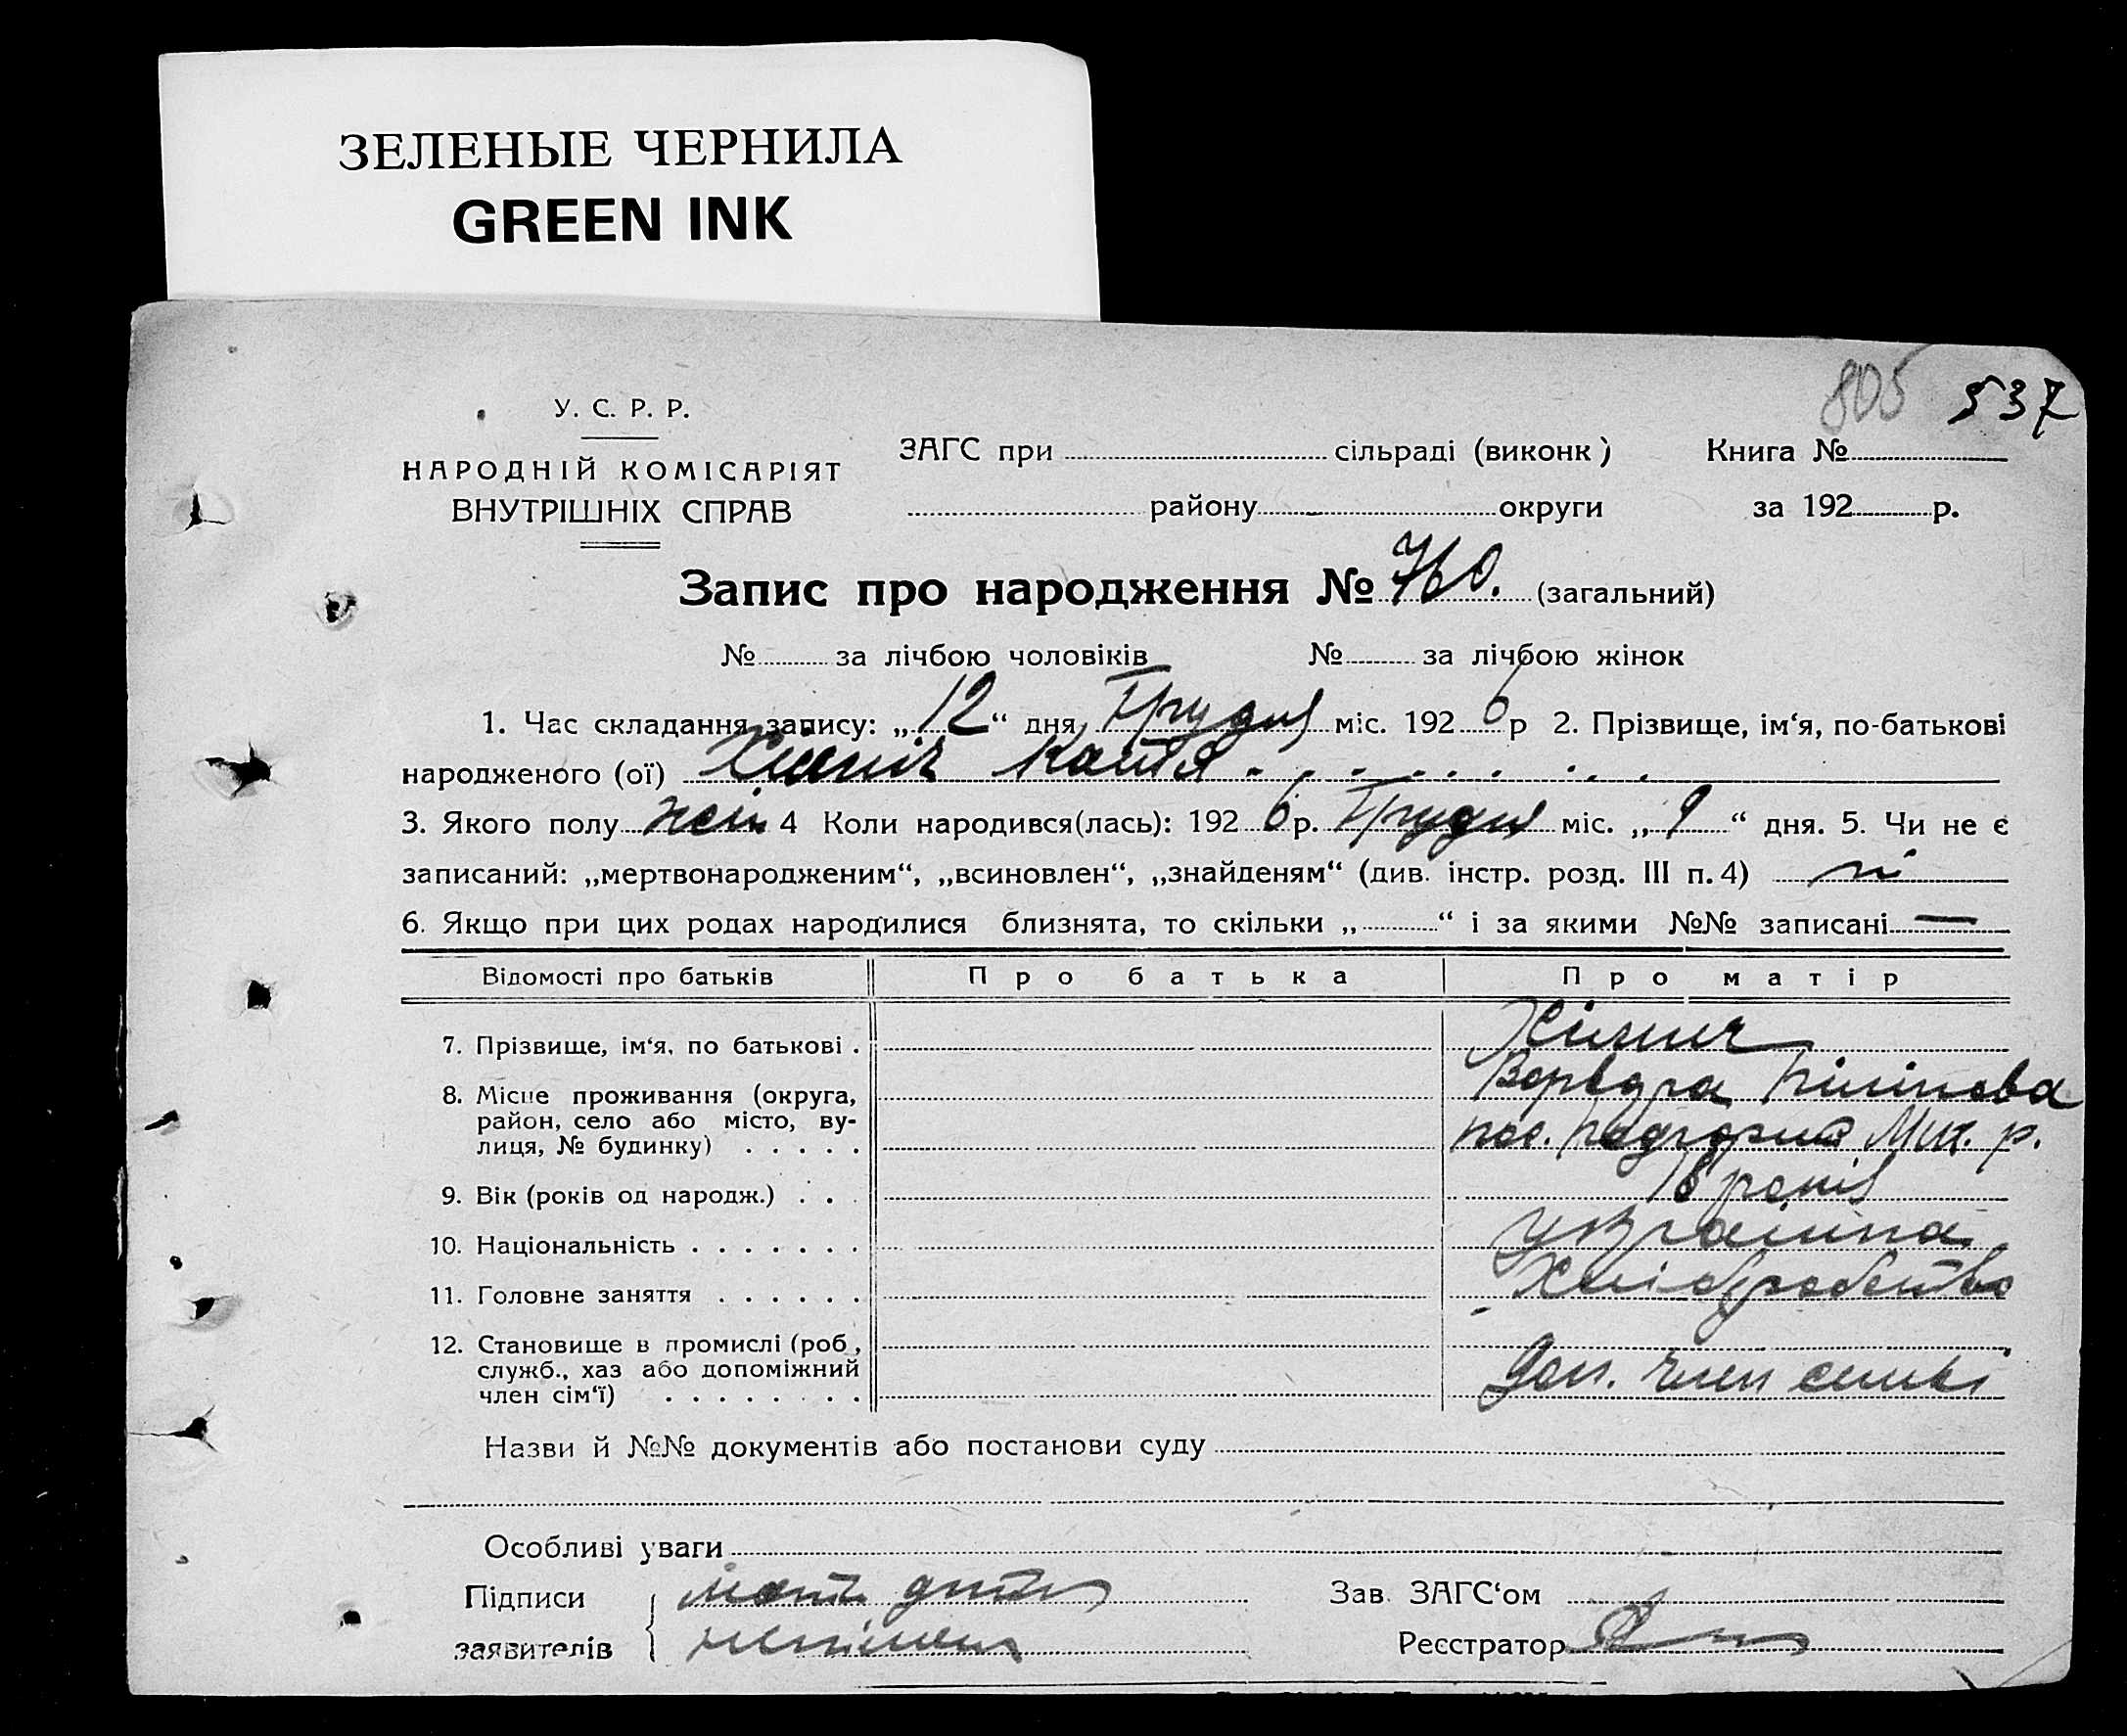 ЗЕЛЕНЫЕ ЧЕРНИЛА
GREEN INK
805 537
У. С. Р. Р.
НАРОДНІЙ КОМІСАРІЯТ
ВНУТРІШНІХ СПРАВ
ЗАГС при сільраді (виконк)
Книга №
району округи
за 192 р.
Запис про народження № 760. (загальний)
№ за лічбою чоловіків № за лічбою жінок
1. Час складання запису: „12“ дня Грудня міс. 1926 р 2. Прізвище, ім‘я, по-батькові
народженого (ої) Катя
3. Якого полу жін 4 Коли народився(лась): 1926 р. Грудня міс. „9“ дня. 5. Чи не є
записаний: „мертвонародженим“, „всиновлен“, „знайденям“ (див. інстр. розд. III п. 4) ні
6. Якщо при цих родах народилися близнята, то скільки „ “ і за якими №№ записані —
Відомості про батьків Про батька Про матір
7. Прізвище, ім‘я, по батькові .
8. Місце проживання (округа,
район, село або місто, ву-
лиця, № будинку) . . . . .
пос. р.
9. Вік (років од народж.) . . . 18 років
10. Національність . . . . . . . українка
11. Головне заняття . . . . . . Хліборобство
12. Становище в промислі (роб.,
служб., хаз або допоміжний
член сім‘ї) . . . . . . . .
Доп. член семьі
Назви й №№ документів або постанови суду
Особливі уваги
Підписи мати
заявителів неписьмен
Зав. ЗАГС‘ом
Реєстратор